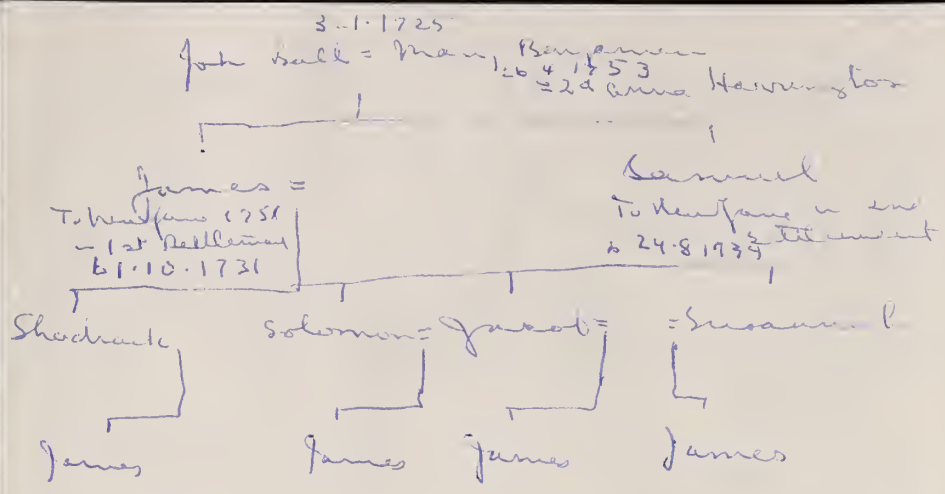 3.1.1725
John Ball = Mary Benjamin
b 4 1753
= 2d Anna Harrington
James =
Samuel
To Newfane
1st Settlement
b 1.10.1731
To Newfane in 2nd
Settlement
b 24.8.1734
Shadrack Solomon = Jacob = = Susanna
James James James James